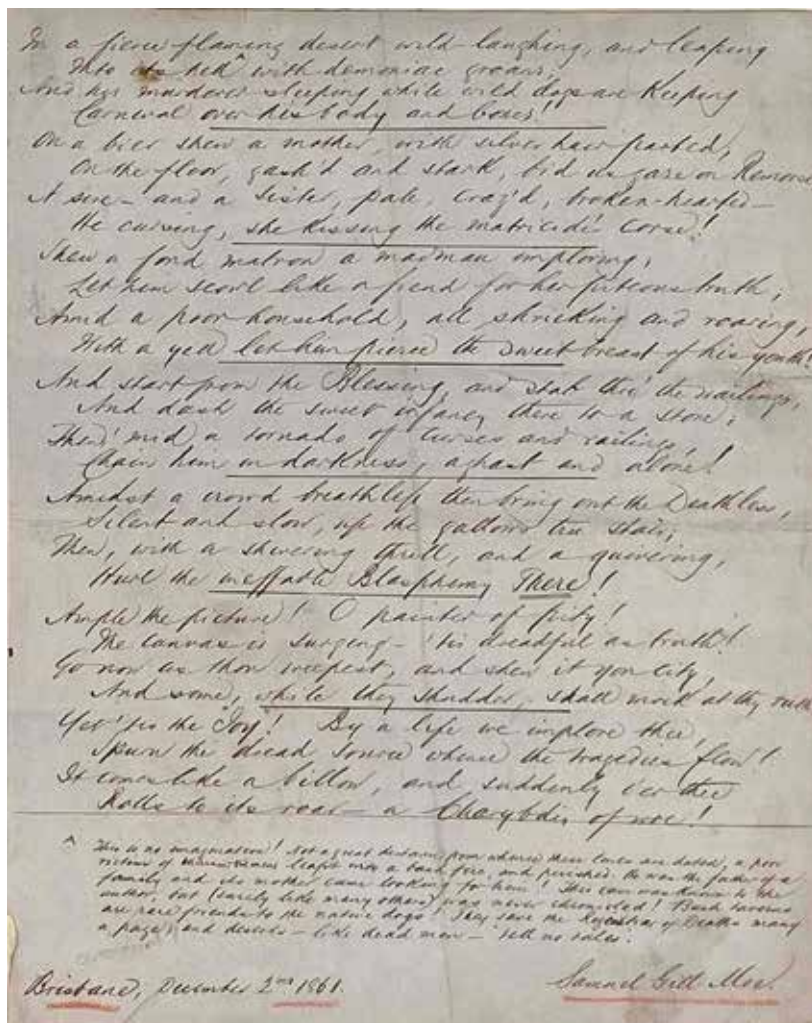 In a fierce flaming desert wild-laughing, and leaping
Into its hell^ with demoniac groans,
And his murderer sleeping while wild dogs are Keeping
Carnival over his body and bones!
On a bier shew a mother, with silver hair parted,
On the floor, gash'd and stark, bid us gaze on Remorse
A sire - and a Sister, pale, craz'd, broken-hearted -
He cursing, she kissing the matricide's Corse!
Shew a fond matron a madman imploring,
Let him scowl like a fiend for her piteous truth;
Amid a poor household, all shrieking and roaring,
With a yell let him pierce the sweet breast of his youth!
And start from the Blessing, and stab thro' the wailings,
And dash the sweet infancy there to a stone;
Then 'mid a tornado of curses and railings,
Chain him in darkness, aghast and alone!
Amidst a crowd breathless then bring out the Deathless,
Silent and slow, up the gallows tree stair;
Then, with a shivering thrill, and a quivering,
Hurl the ineffable Blasphemy There!
Ample the picture! O painter of pity!
The canvas is surging - 'tis dreadful as truth!
Go now as thou weepest, and shew it yon City,
And some, while they shudder, shall mock at thy ruth
Yet 'tis the Joy! By a life we implore thee,
Spurn the dread source whence the tragedies flow!
It comes like a billow, and suddenly o'er thee
Rolls to its roar - a Charybdis of woe!
^ This is no imagination! Not a great distance from where these lines are dated, a poor
victim of leapt into a bush fire, and perished. He was the father of a
family and its mother came looking for him! This case was known to the
author, but (surely like many others) was never chronicled! Bush taverns
are rare friends to the native dogs! They save the Registrar of Deaths many
a page; and deserts - like dead men - tell no tales.
Brisbane, December 2nd 1861.
Samuel Gill